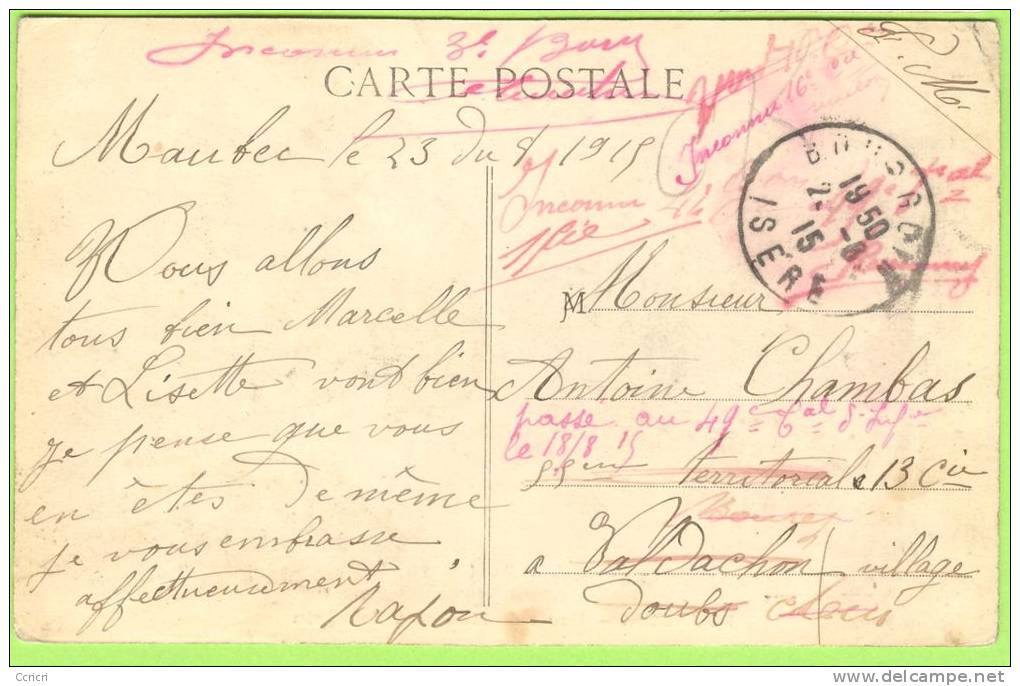 Inconnu 3e
F. M.
CARTE POSTALE
Inconnu 16e Cie
Maubec le 23 du 8 1915
Inconnu
11 Cie
BOURGOIN
19 50
2- -8
15
ISERE
Nous allons
tous bien Marcelle
et Lisette vont bien
je pense que vous
en êtes de même
je vous embrasse
affectueusement
M Monsieur
Antoine Chambas
passé au 49e Bal d'Infie
le 18/8 15
55em territorial 13 Cie
a Valdachon village
Doubs
Ccricri
www.delcampe.net